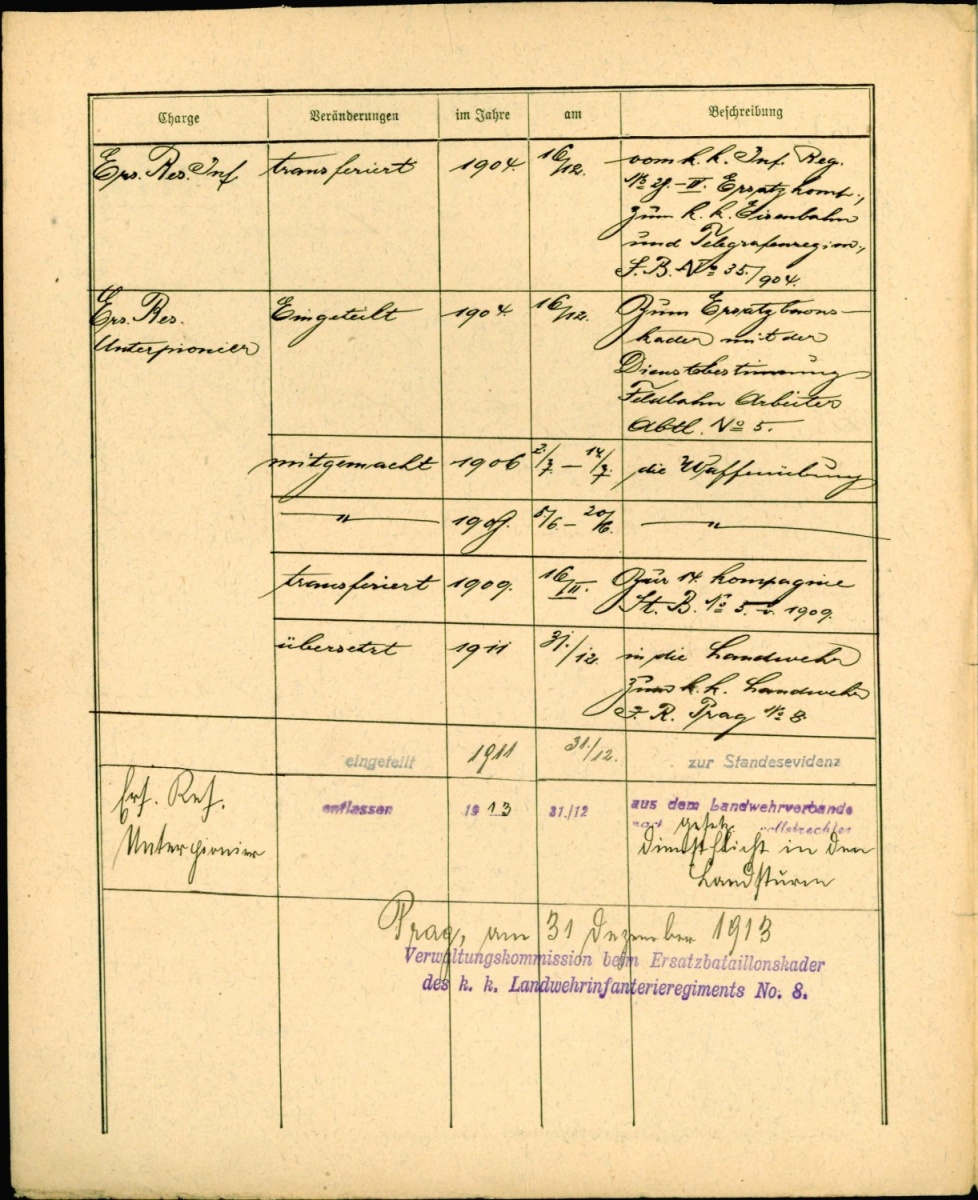 Charge Veränderungen im Jahre am Beschreibung
Ers. Res. Inf transferiert 1904. 16/12. vom k. k. Inf. Reg.
Ersatzkomp.,
zum k. k. Eisenbahn
und Telegrafenregim.,
S. B. No 35/904.
Ers. Res. Eingeteilt 1904. 16/12. Zum Ersatzbaons-
Unterpionier kader mit der
Dienstbestimmung
Feldbahn Arbeiter
Abtl. No 5.
mitgemacht 1906 2./7. – 14/7. die Waffenübung
— " — — " —
transferiert 1909. 16/II. Zur 14. Kompagnie
St. B. No 5 v. 1909.
übersetzt 1911 31./12. in die Landwehr
zum k. k. Landwehr
I. R. Prag No 8.
eingeteilt 1911 31./12. zur Standesevidenz
Ers. Res. entlassen 1913 31./12 aus dem Landwehrverbande
Unterpionier gesetz. vollstreckter
Dienstpflicht in den
Landsturm
Prag, am 31 Dezember 1913
Verwaltungskommission beim Ersatzbataillonskader
des k. k. Landwehrinfanterieregiments No. 8.